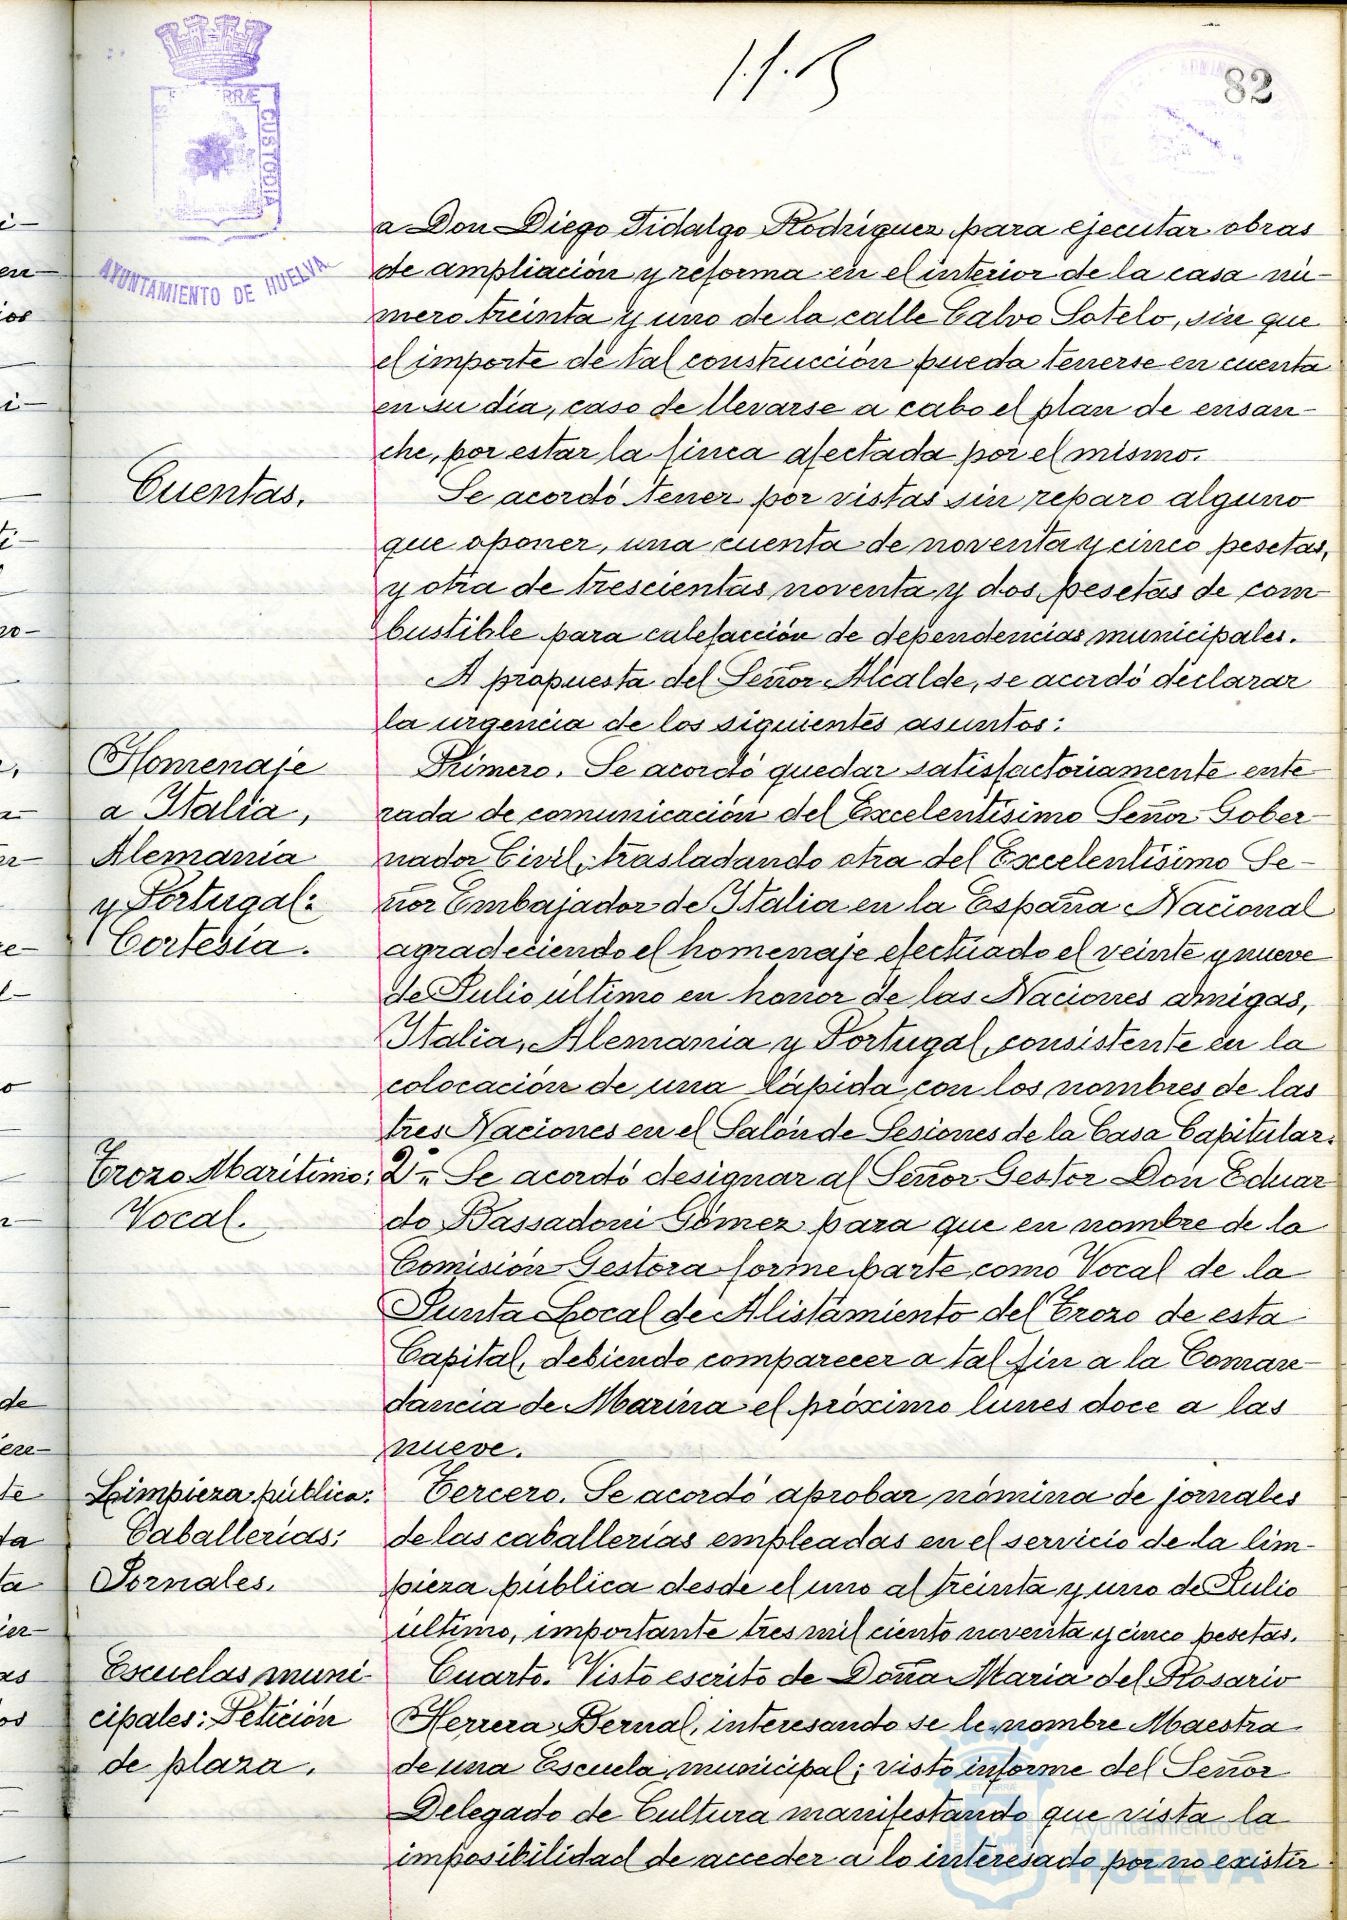 82
CUSTODIA
AYUNTAMIENTO DE HUELVA
a Don Diego Fidalgo Rodríguez para ejecutar obras
de ampliación y reforma en el interior de la casa nú-
mero treinta y uno de la calle Calvo Sotelo, sin que
el importe de tal construcción pueda tenerse en cuenta
en su día, caso de llevarse a cabo el plan de ensan-
che, por estar la finca afectada por el mismo.
Cuentas.
Se acordó tener por vistas sin reparo alguno
que oponer, una cuenta de noventa y cinco pesetas,
y otra de trescientas noventa y dos pesetas de com-
bustible para calefacción de dependencias municipales.
A propuesta del Señor Alcalde, se acordó declarar
la urgencia de los siguientes asuntos:
Homenaje
a Italia,
Alemania
y Portugal:
Cortesía.
Primero. Se acordó quedar satisfactoriamente ente-
rada de comunicación del Excelentísimo Señor Gober-
nador Civil, trasladando otra del Excelentísimo Se-
ñor Embajador de Italia en la España Nacional
agradeciendo el homenaje efectuado el veinte y nueve
de Julio último en honor de las Naciones amigas,
Italia, Alemania y Portugal, consistente en la
colocación de una lápida con los nombres de las
tres Naciones en el Salón de Sesiones de la Casa Capitular.
Trozo Marítimo:
Vocal.
2º- Se acordó designar al Señor Gestor Don Eduar-
do Bassadoni Gómez para que en nombre de la
Comisión Gestora forme parte como Vocal de la
Junta Local de Alistamiento del Trozo de esta
Capital, debiendo comparecer a tal fin a la Coman-
dancia de Marina el próximo lunes doce a las
nueve.
Limpieza pública:
Caballerías:
Jornales.
Tercero. Se acordó aprobar nómina de jornales
de las caballerías empleadas en el servicio de la lim-
pieza pública desde el uno al treinta y uno de Julio
último, importante tres mil ciento noventa y cinco pesetas.
Escuelas muni-
cipales: Petición
de plaza.
Cuarto. Visto escrito de Doña María del Rosario
Herrera Bernal, interesando se le nombre Maestra
de una Escuela municipal; visto informe del Señor
Delegado de Cultura manifestando que vista la
imposibilidad de acceder a lo interesado por no existir
Ayuntamiento de
HUELVA